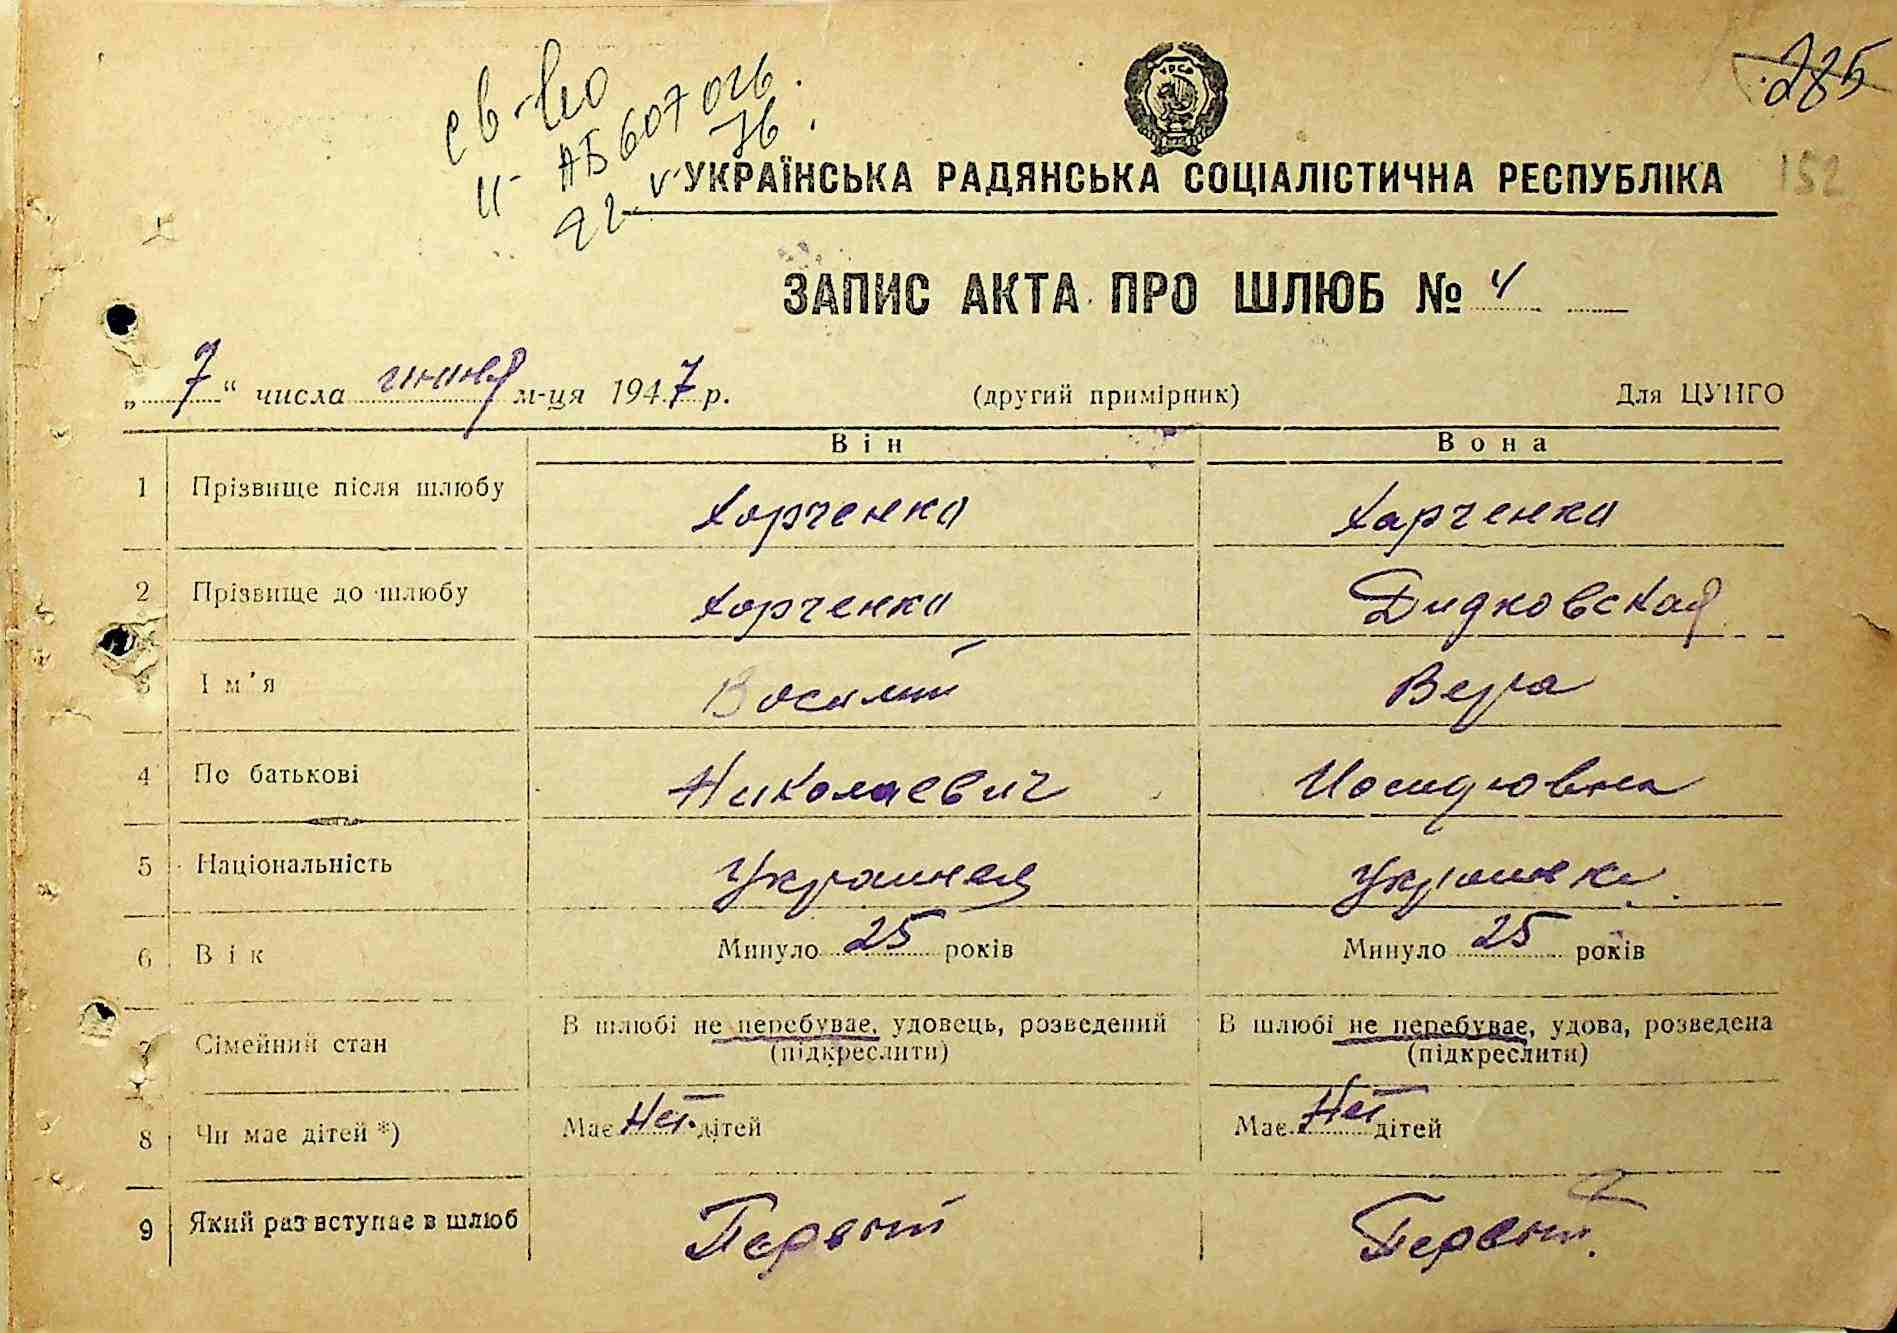 св-во
II-АБ 607026.
22-V-76.
285
152
УКРАЇНСЬКА РАДЯНСЬКА СОЦІАЛІСТИЧНА РЕСПУБЛІКА
ЗАПИС АКТА ПРО ШЛЮБ № 4
„7“ числа июня м-ця 1947 р. (другий примірник) Для ЦУНГО
Він Вона
1 Прізвище після шлюбу Харченко Харченко
2 Прізвище до шлюбу Харченко Дидковская
3 Ім'я Василий Вера
4 По батькові Николаевич Иосифовна
5 Національність Украинец Украинка
6 Вік Минуло 25 років Минуло 25 років
7 Сімейний стан В шлюбі не перебуває, удовець, розведений В шлюбі не перебуває, удова, розведена
(підкреслити) (підкреслити)
8 Чи має дітей *) Має Нет. дітей Має Нет дітей
9 Який раз вступає в шлюб Первый Первый